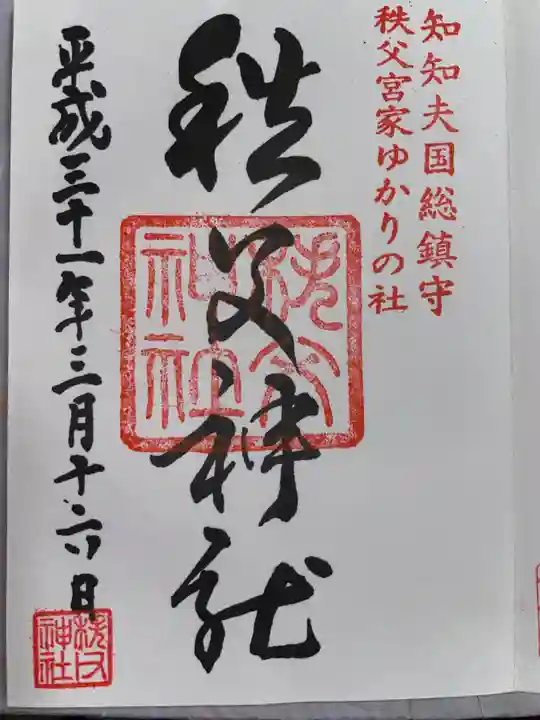 知知夫国総鎮守
秩父宮家ゆかりの社
秩父神社
秩父神社
平成三十一年三月十六日
秩父神社